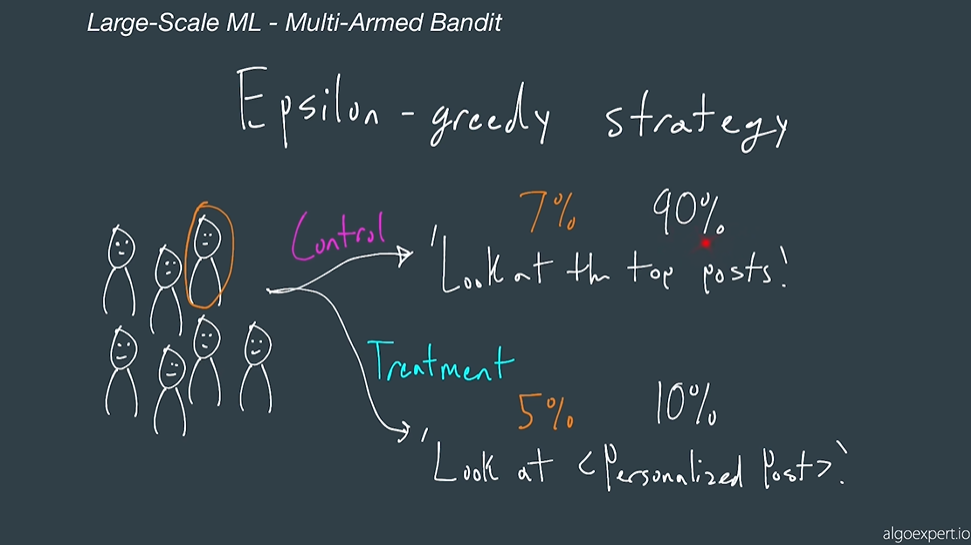 Large-Scale ML - Multi-Armed Bandit
Epsilon-greedy strategy
Control
7% 90%
'Look at the top posts!'
Treatment
5% 10%
'Look at <Personalized Post>!'
algoexpert.io